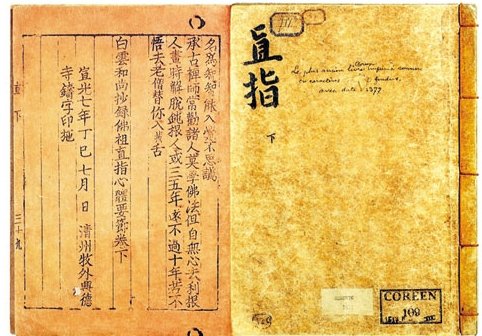 名爲知能入不思議
承古禪師常勸諸人莫學佛法但自無心去利根
人晝時解脫鈍根人或三五年遠不過十年若不
悟去老僧替你入拔舌
白雲和尚抄錄佛祖直指心體要節卷下
宣光七年丁巳七月 日 淸州牧外興德
寺鑄字印施
直下 三十九
直指
下
Le plus ancien livre imprimé connu
en caractères fondus,
avec date = 1377
COREEN
109